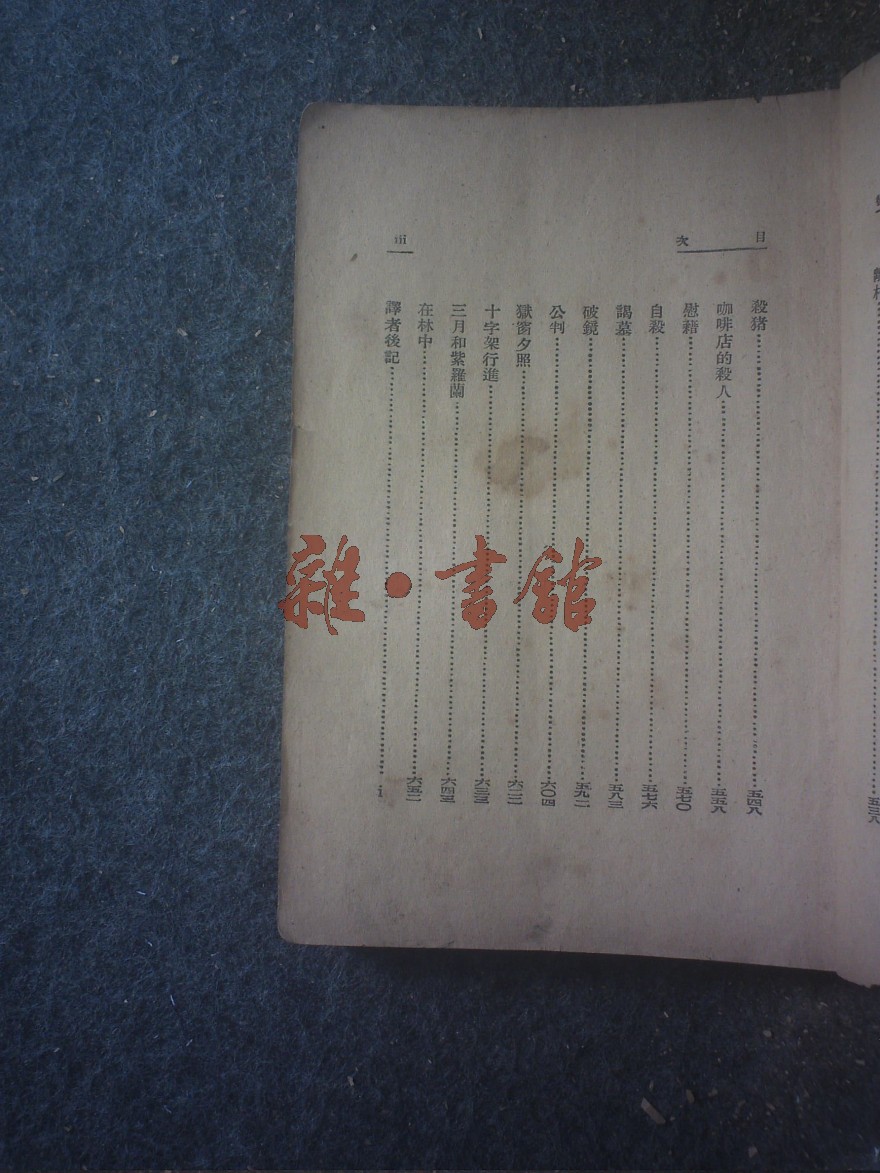 目次
殺猪……五四八
咖啡店的殺人……五五八
慰藉……五七〇
自殺……五七六
謁墓……五八三
破鏡……五九二
公判……六〇四
獄窗夕照……六一二
十字架行進……六三三
三月和紫羅蘭……六四三
在林中……六五二
譯者後記……i
iii
五三八
雜·書館